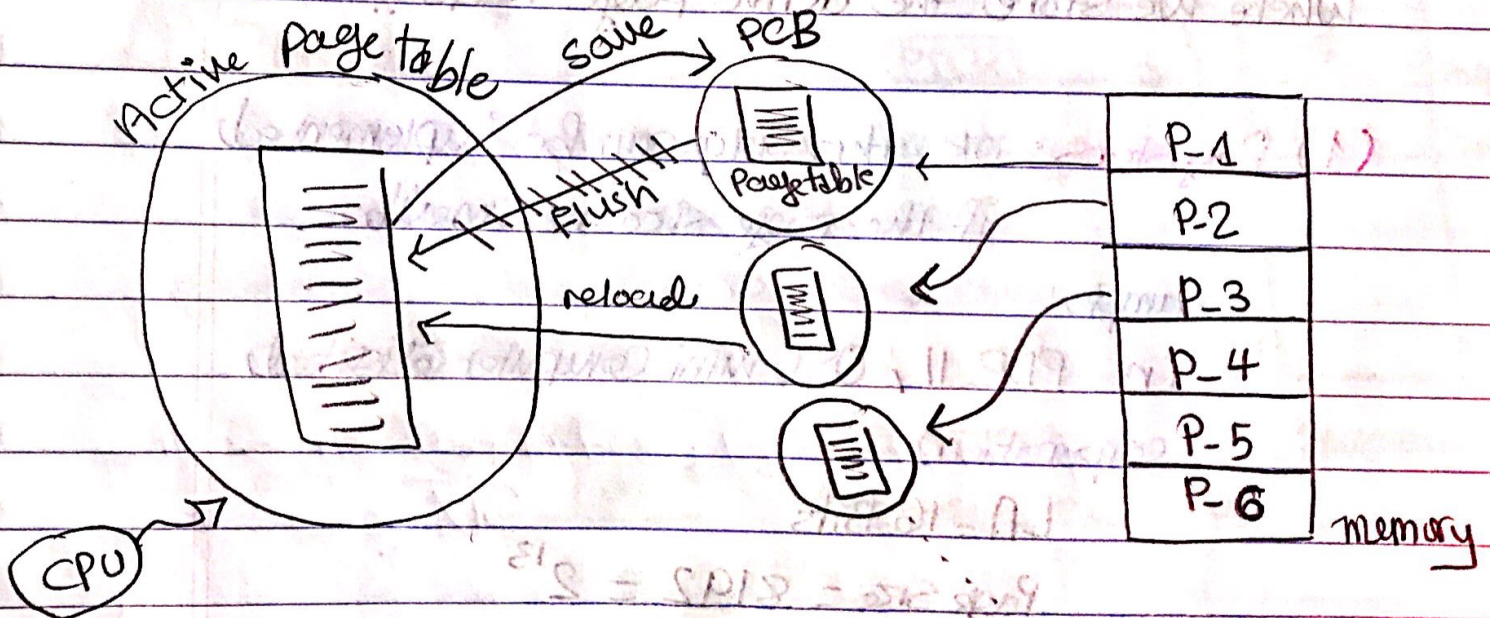 Active page table
save
PCB
Pagetable
Flush
reload
CPU
P_1
P-2
P_3
P_4
P-5
P-6
memory
Page size = 8192 = 2^13